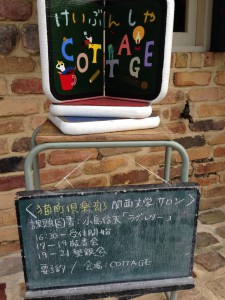 けいぶんしゃ
COTTAGE
〈猫町倶楽部 関西文学サロン〉
課題図書：小島信夫「ラヴ・レター」
16:30〜 受付開始
17〜19 読書会
19〜21 懇親会
要予約 / 会場：COTTAGE